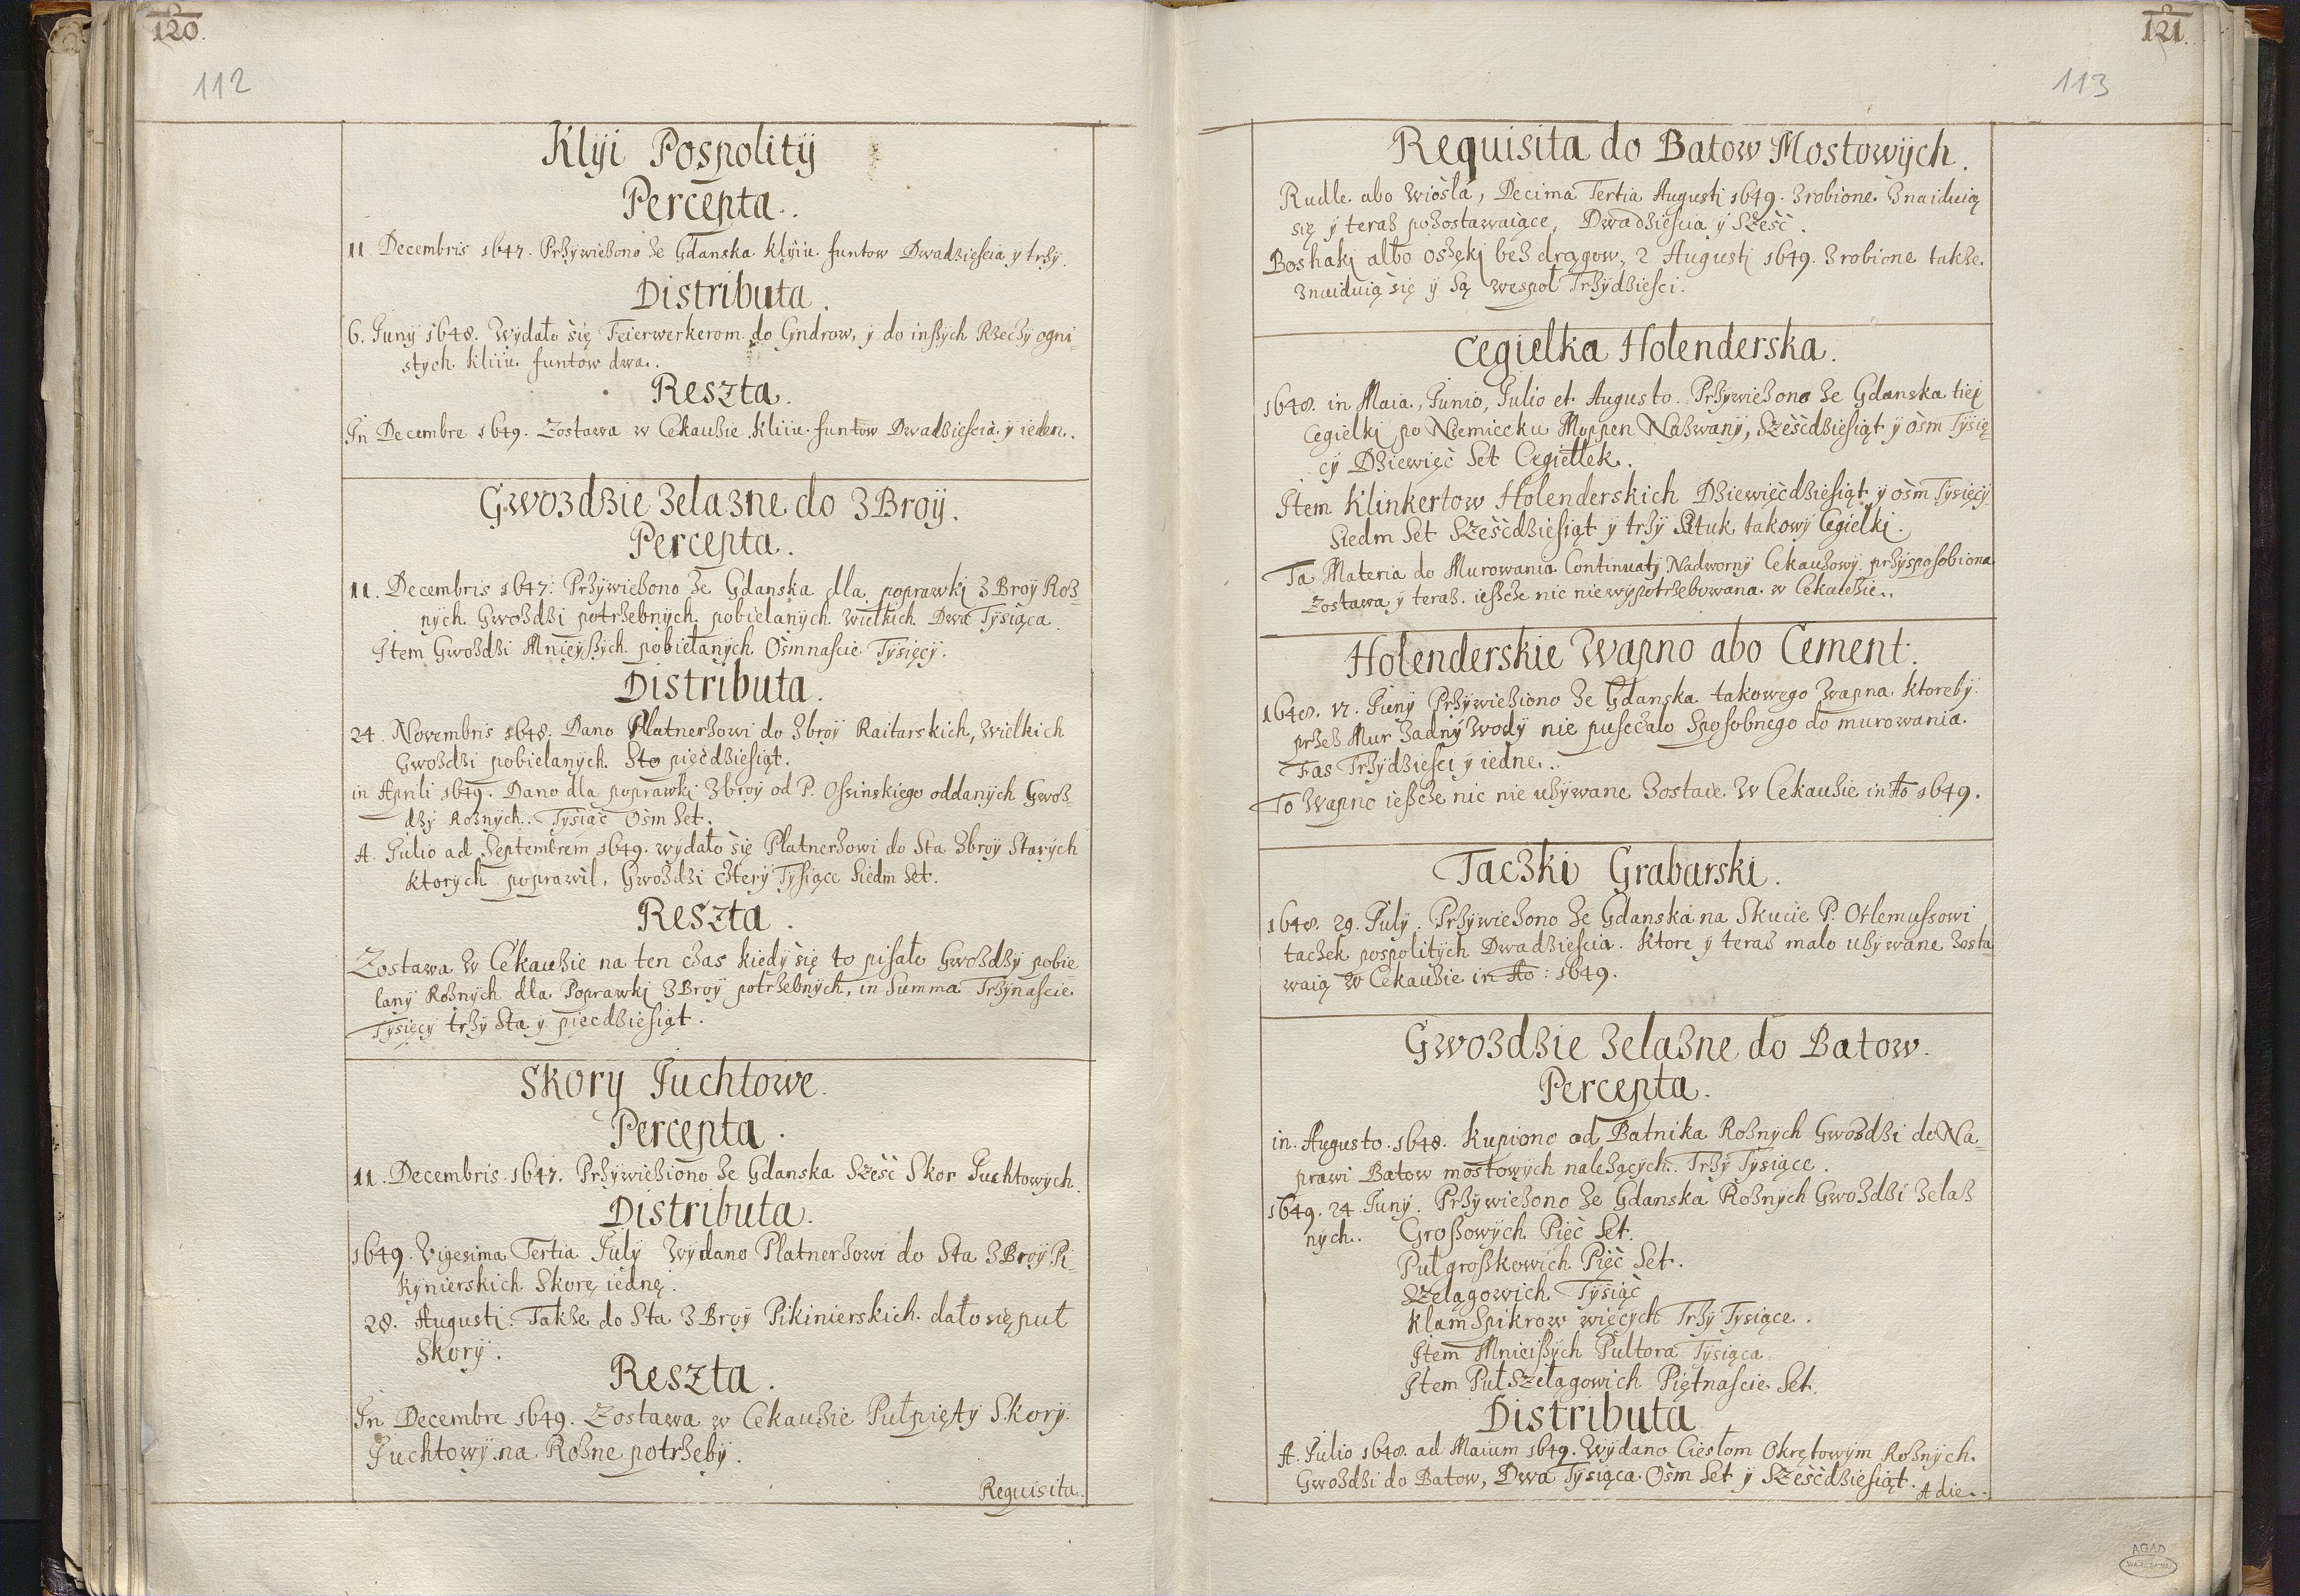 120.
112
Klÿi Pospolitÿ
Percepta.
11 Decembris 1647. Przywieżono ze Gdanska klÿiu funtow Dwadziescia ÿ trzÿ.
Distributa.
6. Junÿ 1648. Wÿdało się Feierwerkerom do Gÿndrow, ÿ do inszÿch Rzeczÿ ogni-
stÿch kliiu funtow dwa.
Reszta.
In Decembre 1649. Zostawa w Cekauzie kliiu funtow Dwadziescia ÿ ieden.
Gwozdzie zelazne do zBroÿ.
Percepta.
11. Decembris 1647. Przÿwiezono ze Gdanska dla poprawkj zBroÿ Roz-
nÿch Gwozdzi potrzebnÿch pobielanÿch wielkich Dwa Tÿsiąca.
Item Gwozdzi Mnieÿszÿch pobielanÿch Osmnascie Tÿsięcÿ.
Distributa.
24. Novembris 1648. Dano Platnerzowi do zbroÿ Raitarskich, wielkich
Gwozdzi pobielanÿch. Sto pięćdziesiąt.
in Aprili 1649. Dano dla poprawkj zbroÿ od P. Ossinskiego oddanÿch Gwoz-
dzÿ Roznÿch. Tÿsiąc Osm Set.
A. Julio ad Septembrem 1649. wÿdało się Platnerzowi do Sta zbroÿ Starÿch
ktorÿch poprawil, Gwozdzi czterÿ Tÿsiące Siedm Set.
Reszta.
Zostawa w Cekauzie na ten czas kiedÿ się to pisało Gwozdzÿ pobie-
lanÿ Roznÿch dla Poprawkj zBroÿ potrzebnÿch, in Summa Trzÿnascie
Tÿsięcÿ trzÿ Sta ÿ piecdziesiąt.
Skorÿ Juchtowe.
Percepta.
11. Decembris 1647. Przÿwieziono ze Gdanska Sześć Skor Juchtowÿch.
Distributa.
1649. Vigesima Tertia Julÿ Wÿdano Platnerzowi do Sta zBroÿ Pi
kÿnierskich Skorę iednę.
28. Augusti. Takze do Sta zBroÿ Pikinierskich dało się puł
Skorÿ.
Reszta.
In Decembre 1649. Zostawa w Cekauzie Pułpiętÿ Skorÿ
Juchtowÿ na Rozne potrzebÿ.
Requisita.
121.
113
Requisita do Batow Mostowÿch.
Rudle abo wiosla, Decima Tertia Augusti 1649. zrobione. znaiduią
się ÿ teraz pozostawaiące, Dwadziescia ÿ Sześć.
Boshakj albo oszękj bez drągow, 2 Augustj 1649. zrobione takze.
znaiduią się ÿ są wespoł Trzÿdziesci.
Cegielka Holenderska.
1648. in Maia, Junio, Julio et Augusto. Przÿwiezono ze Gdanska tieÿ
Cegielkj po Niemiecku Moppen Nazwanÿ, Sześćdziesiąt ÿ osm Tÿsię-
cÿ Dziewięć Set Cegiełek.
Item Klinkertow Holenderskich Dziewięćdziesiąt ÿ osm Tÿsięcÿ
Siedm Set Sześćdziesiąt ÿ trzÿ Sztuk takowÿ Cegielkj.
Ta Materia do Murowania Continuatÿ Nadwornÿ Cekauzowÿ przÿsposobiona
Zostawa ÿ teraz ieszcze nic niewÿpotrzebowana w Cekauzie.
Holenderskie Wapno abo Cement.
1648. 12. Junÿ Przÿwieziono ze Gdanska takowego wapna ktorebÿ
przez Mur żadnÿ wodÿ nie pusczalo Sposobnego do murowania.
Fas Trzÿdziesci ÿ iedne.
To Wapno ieszcze nic nie uzÿwane zostaie w Cekauzie in Ao 1649.
Taczki Grabarski.
1648. 29. Julÿ. Przÿwiezono ze Gdanska na Skucie P. Orlemussowi
taczek pospolitÿch Dwadziescia. Ktore ÿ teraz malo uzÿwane zosta
waią w Cekauzie in Ao: 1649.
Gwozdzie zelazne do Batow.
Percepta.
in Augusto 1648. Kupiono od Batnika Roznÿch Gwozdzi do Na-
prawi Batow mostowÿch nalezącÿch. Trzÿ Tÿsiące.
1649. 24. Junÿ. Przÿwiezono ze Gdanska Roznÿch Gwozdzi zelaz
nÿch. Groszowÿch Pięć Set.
Puł groszkowich Pięć Set.
Szelągowich Tÿsiąc
Klam Spikrow więcÿch Trzÿ Tÿsiące.
Item Mnieiszÿch Pultora Tÿsiąca.
Item Puł Szelągowich Piętnascie Set.
Distributa
A. Julio 1648. ad Maium 1649. Wÿdano Cieslom Okrętowÿm Roznÿch
Gwozdzi do Batow, Dwa Tÿsiąca Osm Set ÿ Sześćdziesiąt.
A die.
AGAD